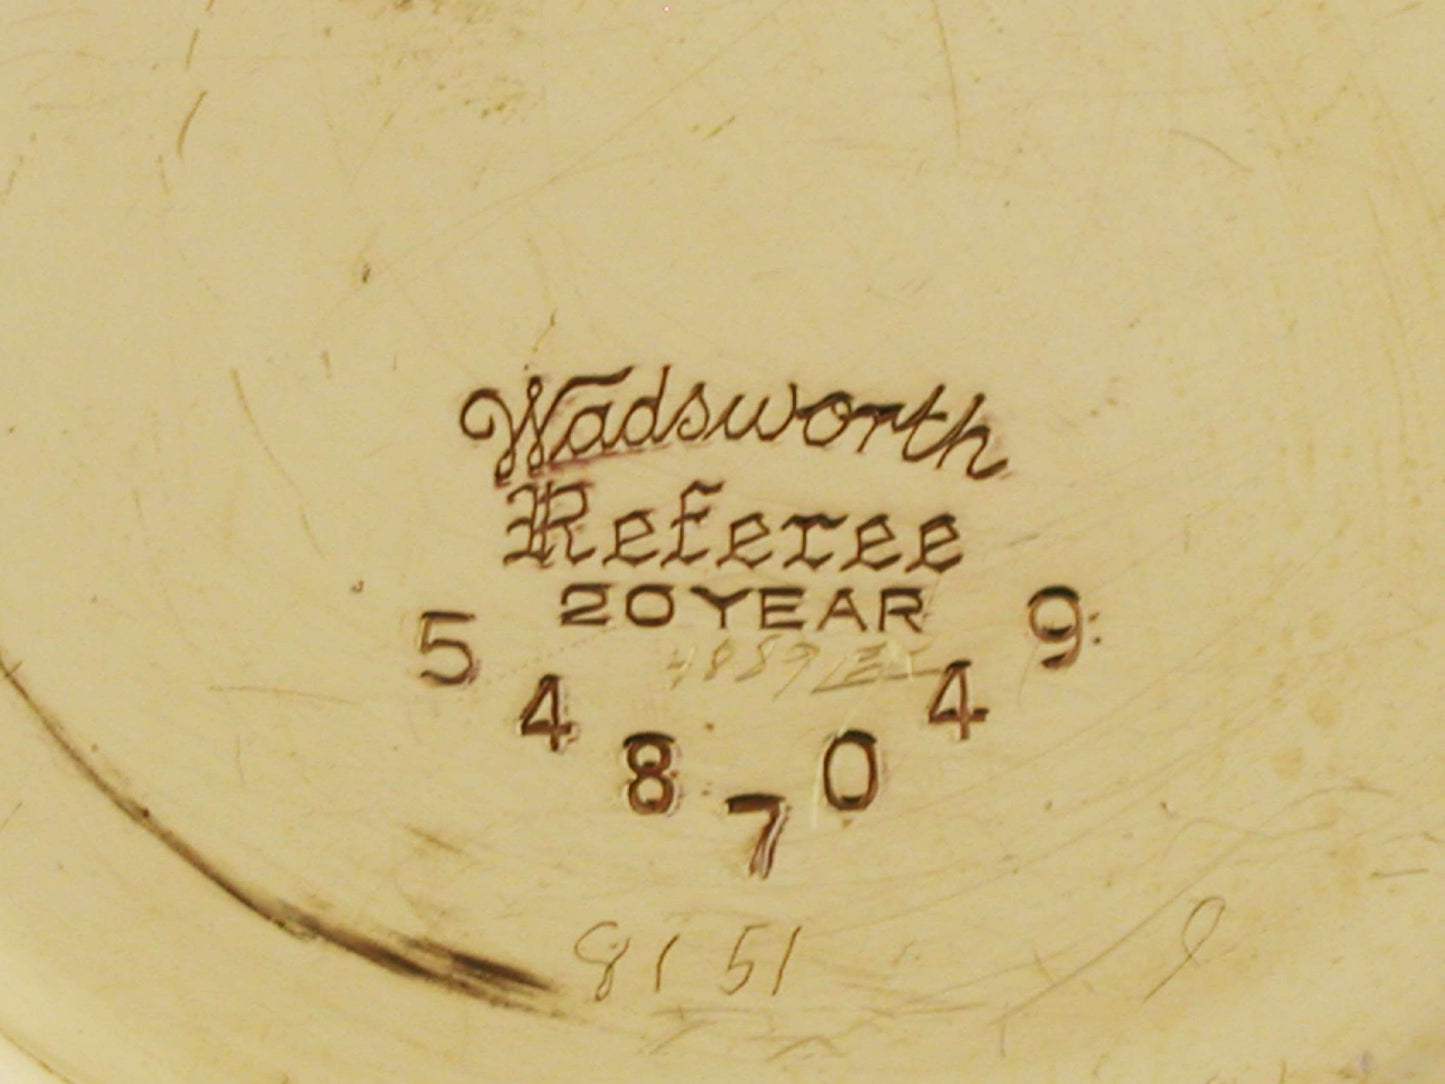 Wadsworth
Referee
20 YEAR
5487049
8151